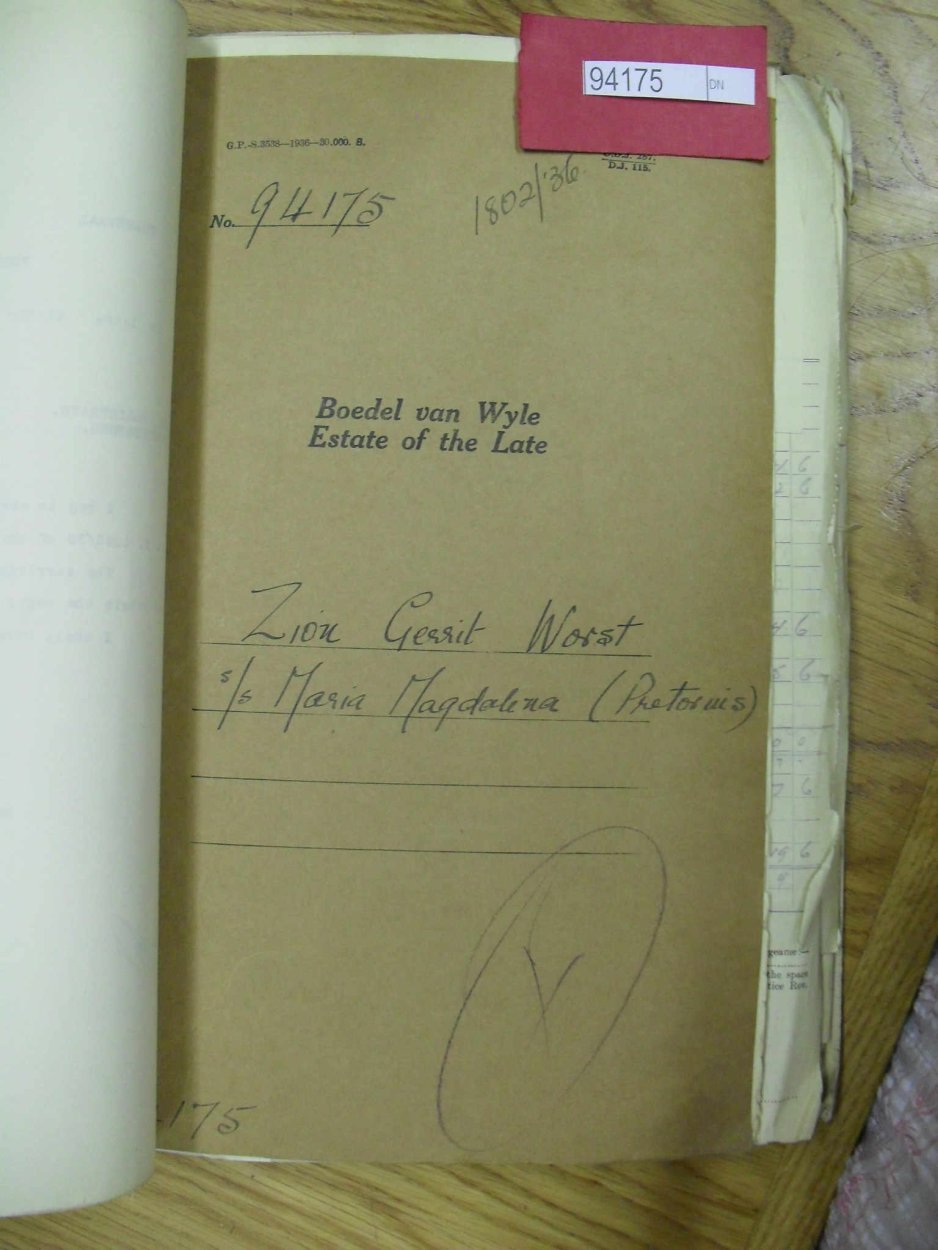 94175 DN
G.P.-S.3538—1936—30,000. S.
D.J. 115.
No. 94175
1802/'36
Boedel van Wyle
Estate of the Late
Zion Gerrit Worst
s/s Maria Magdalena (Pretorius)
175
6
6
6
6
0 0
6
6
9
geane:—
the space
tice Rev.